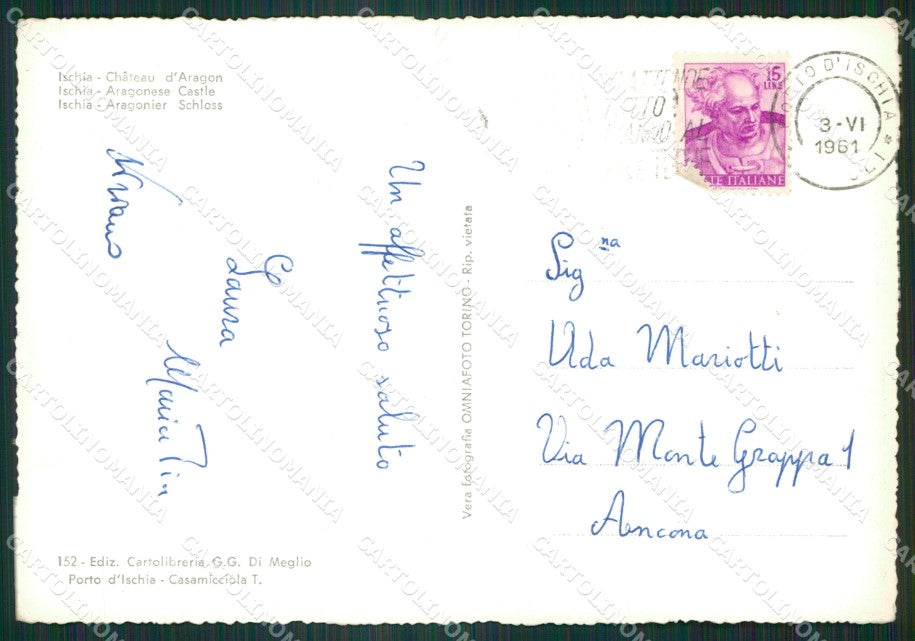 Ischia - Château d'Aragon
Ischia - Aragonese Castle
Ischia - Aragonier Schloss
Un affettuoso saluto
Laura
Maria Pia
Vera fotografia OMNIAFOTO TORINO - Rip. vietata
152 - Ediz. Cartolibreria G.G. Di Meglio
Porto d'Ischia - Casamicciola T.
15
LIRE
POSTE ITALIANE
D'ISCHIA
3-VI
1961
Sig.na
Alda Mariotti
Via Monte Grappa 1
Ancona
CARTOLINOMANIA